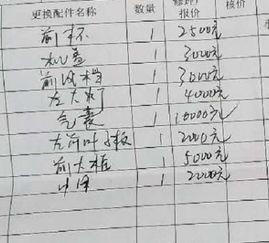 更换配件名称 数量 修理厂报价 核价
前杯 1 2500元
机盖 1 3000元
前风档 1 3000元
左大灯 1 4000元
气囊 1 10000元
左前叶子板 1 2000元
前大框 1 5000元
1 2000元